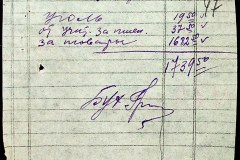 уголь 19 50
от учит. за пшен. 37 50
за товары 1682 50
1739 50
Бух.